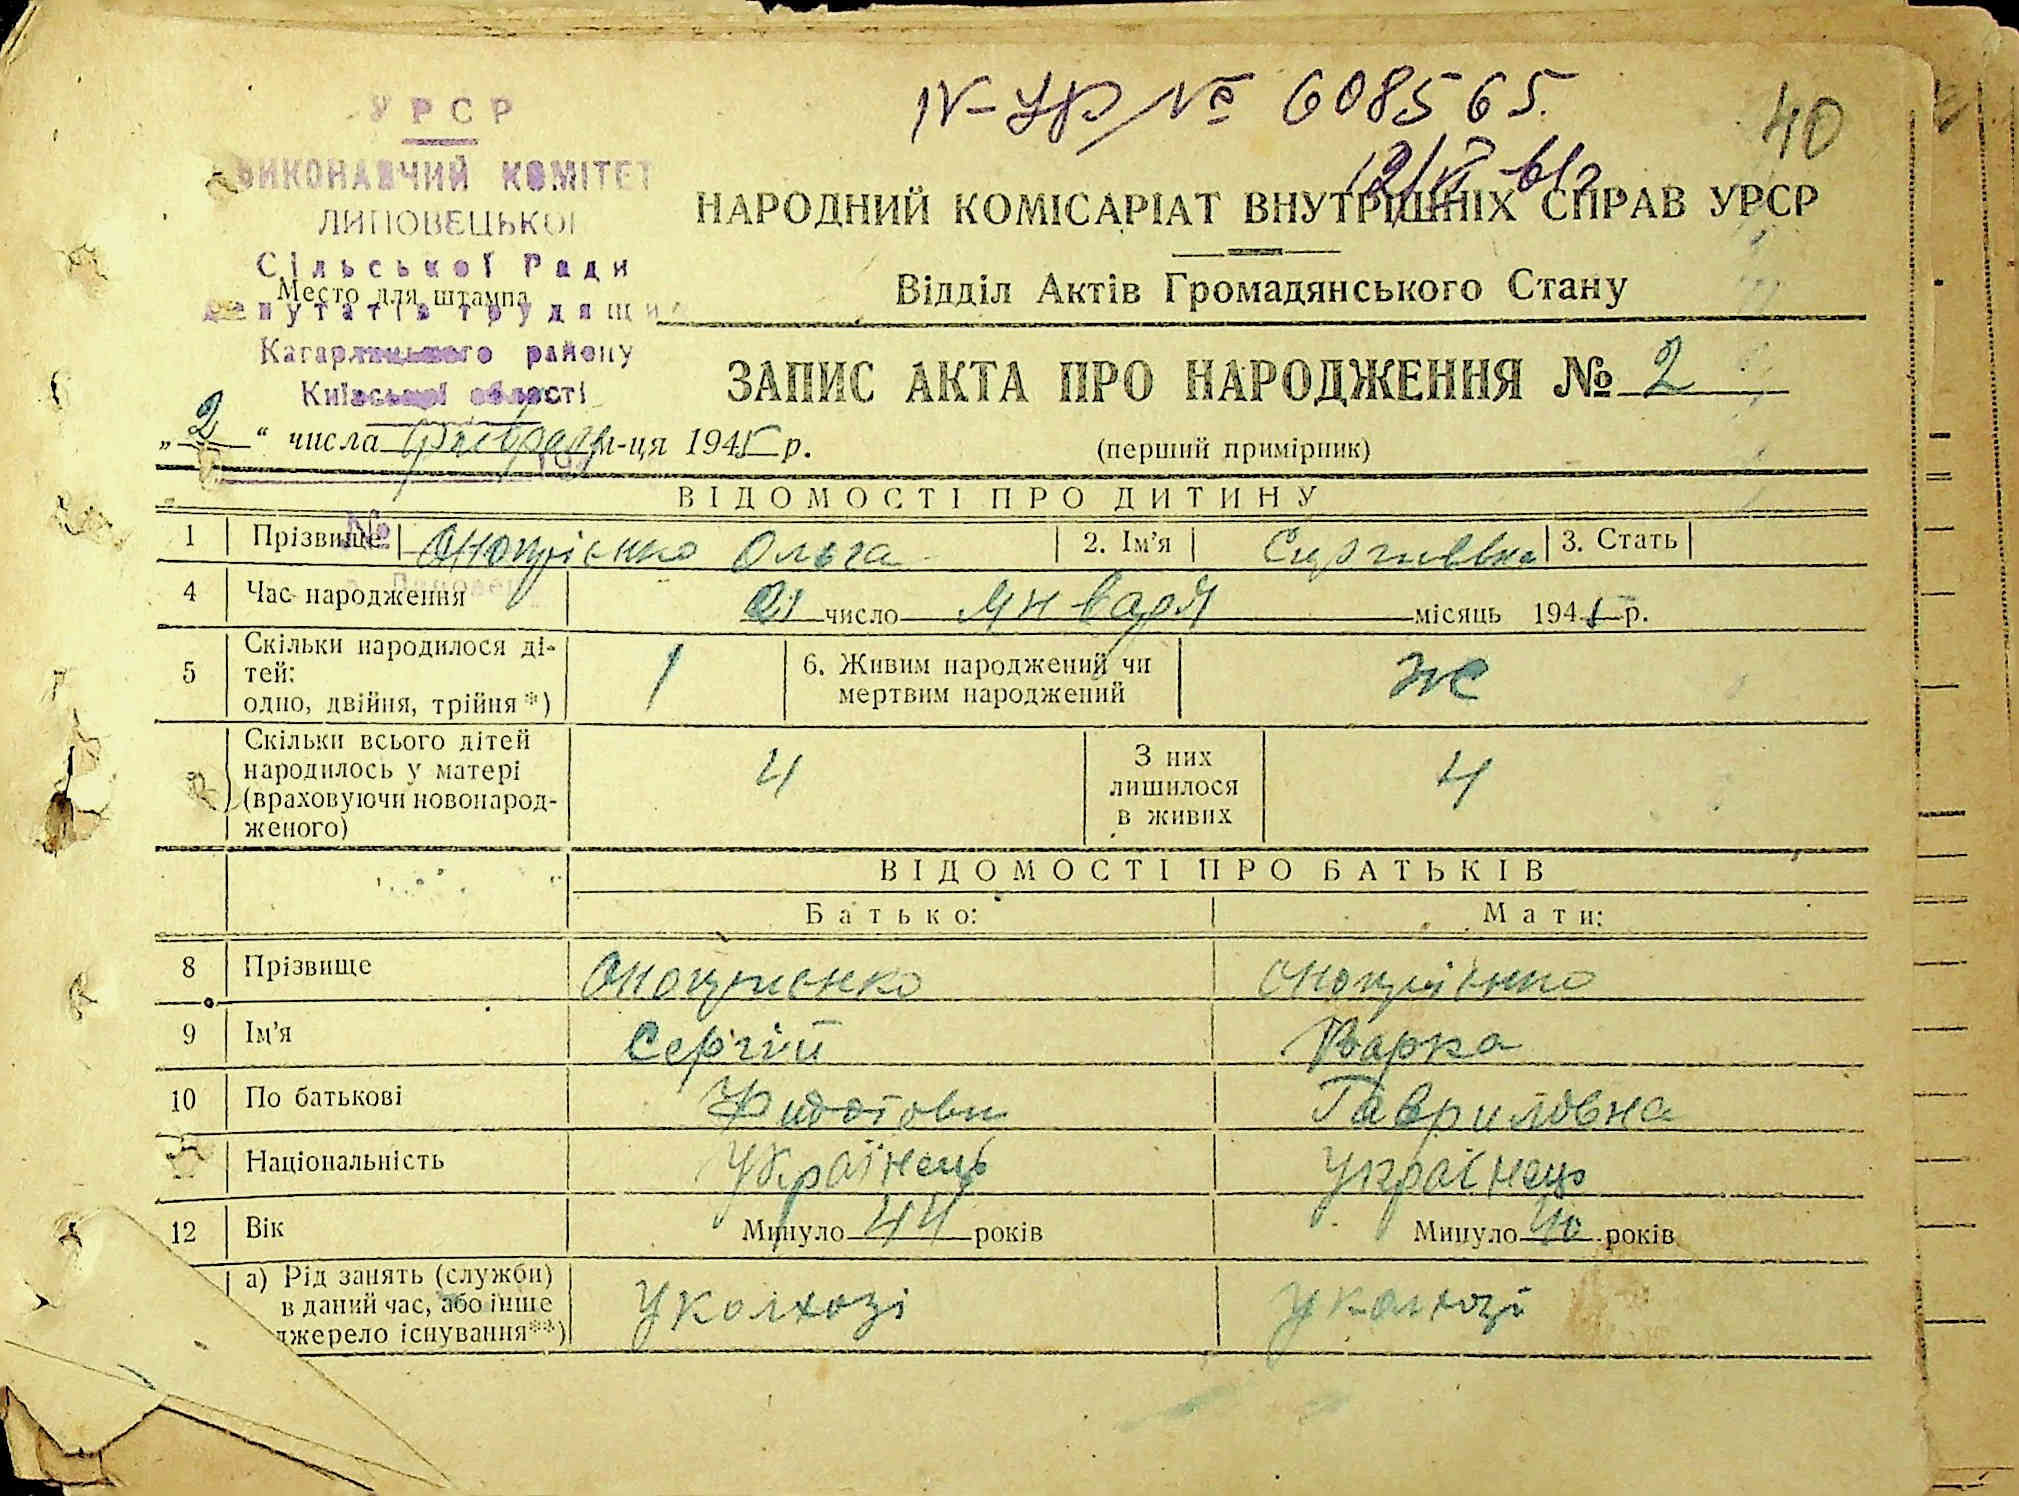 IV-УР № 608565.
40
12/VI-61г
УРСР
ВИКОНАВЧИЙ КОМІТЕТ
ЛИПОВЕЦЬКОЇ
Сільської Ради
Место для штампа
Депутатів трудящих
Кагарлицького району
Київської області
НАРОДНИЙ КОМІСАРІАТ ВНУТРІШНІХ СПРАВ УРСР
Відділ Актів Громадянського Стану
ЗАПИС АКТА ПРО НАРОДЖЕННЯ № 2
„2“ числа февраля м-ця 1945 р.
(перший примірник)
ВІДОМОСТІ ПРО ДИТИНУ
№
1 Прізвище Онопрієнко Ольга 2. Ім’я Сиргиевна 3. Стать
4 Час народження 21 число января місяць 1945 р.
5 Скільки народилося ді-
тей:
одно, двійня, трійня*) 1 6. Живим народжений чи
мертвим народжений ж
Скільки всього дітей
народилось у матері
(враховуючи новонарод-
женого) 4 З них
лишилося
в живих 4
ВІДОМОСТІ ПРО БАТЬКІВ
Батько: Мати:
8 Прізвище Оноприенко Онопрієнко
9 Ім’я Сергій Варка
10 По батькові Фидотови Гавриловна
Національність Українець Українець
12 Вік Минуло 44 років Минуло 40 років
а) Рід занять (служби)
в даний час, або інше
джерело існування**) У колхозі У колхозі